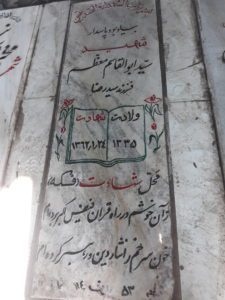 بیاد بود پاسدار
شهید
سید ابوالقاسم معظم
فرزند سید رضا
ولادت شهادت
۱۳۳۵ ۱۳۶۲,۱,۲۴
محل شهادت (فکه)
آن خوشم در راه قرآن فیض اکبر کرده‌ام
خون سرخم را نثار دین و رهبر کرده‌ام
۵۳